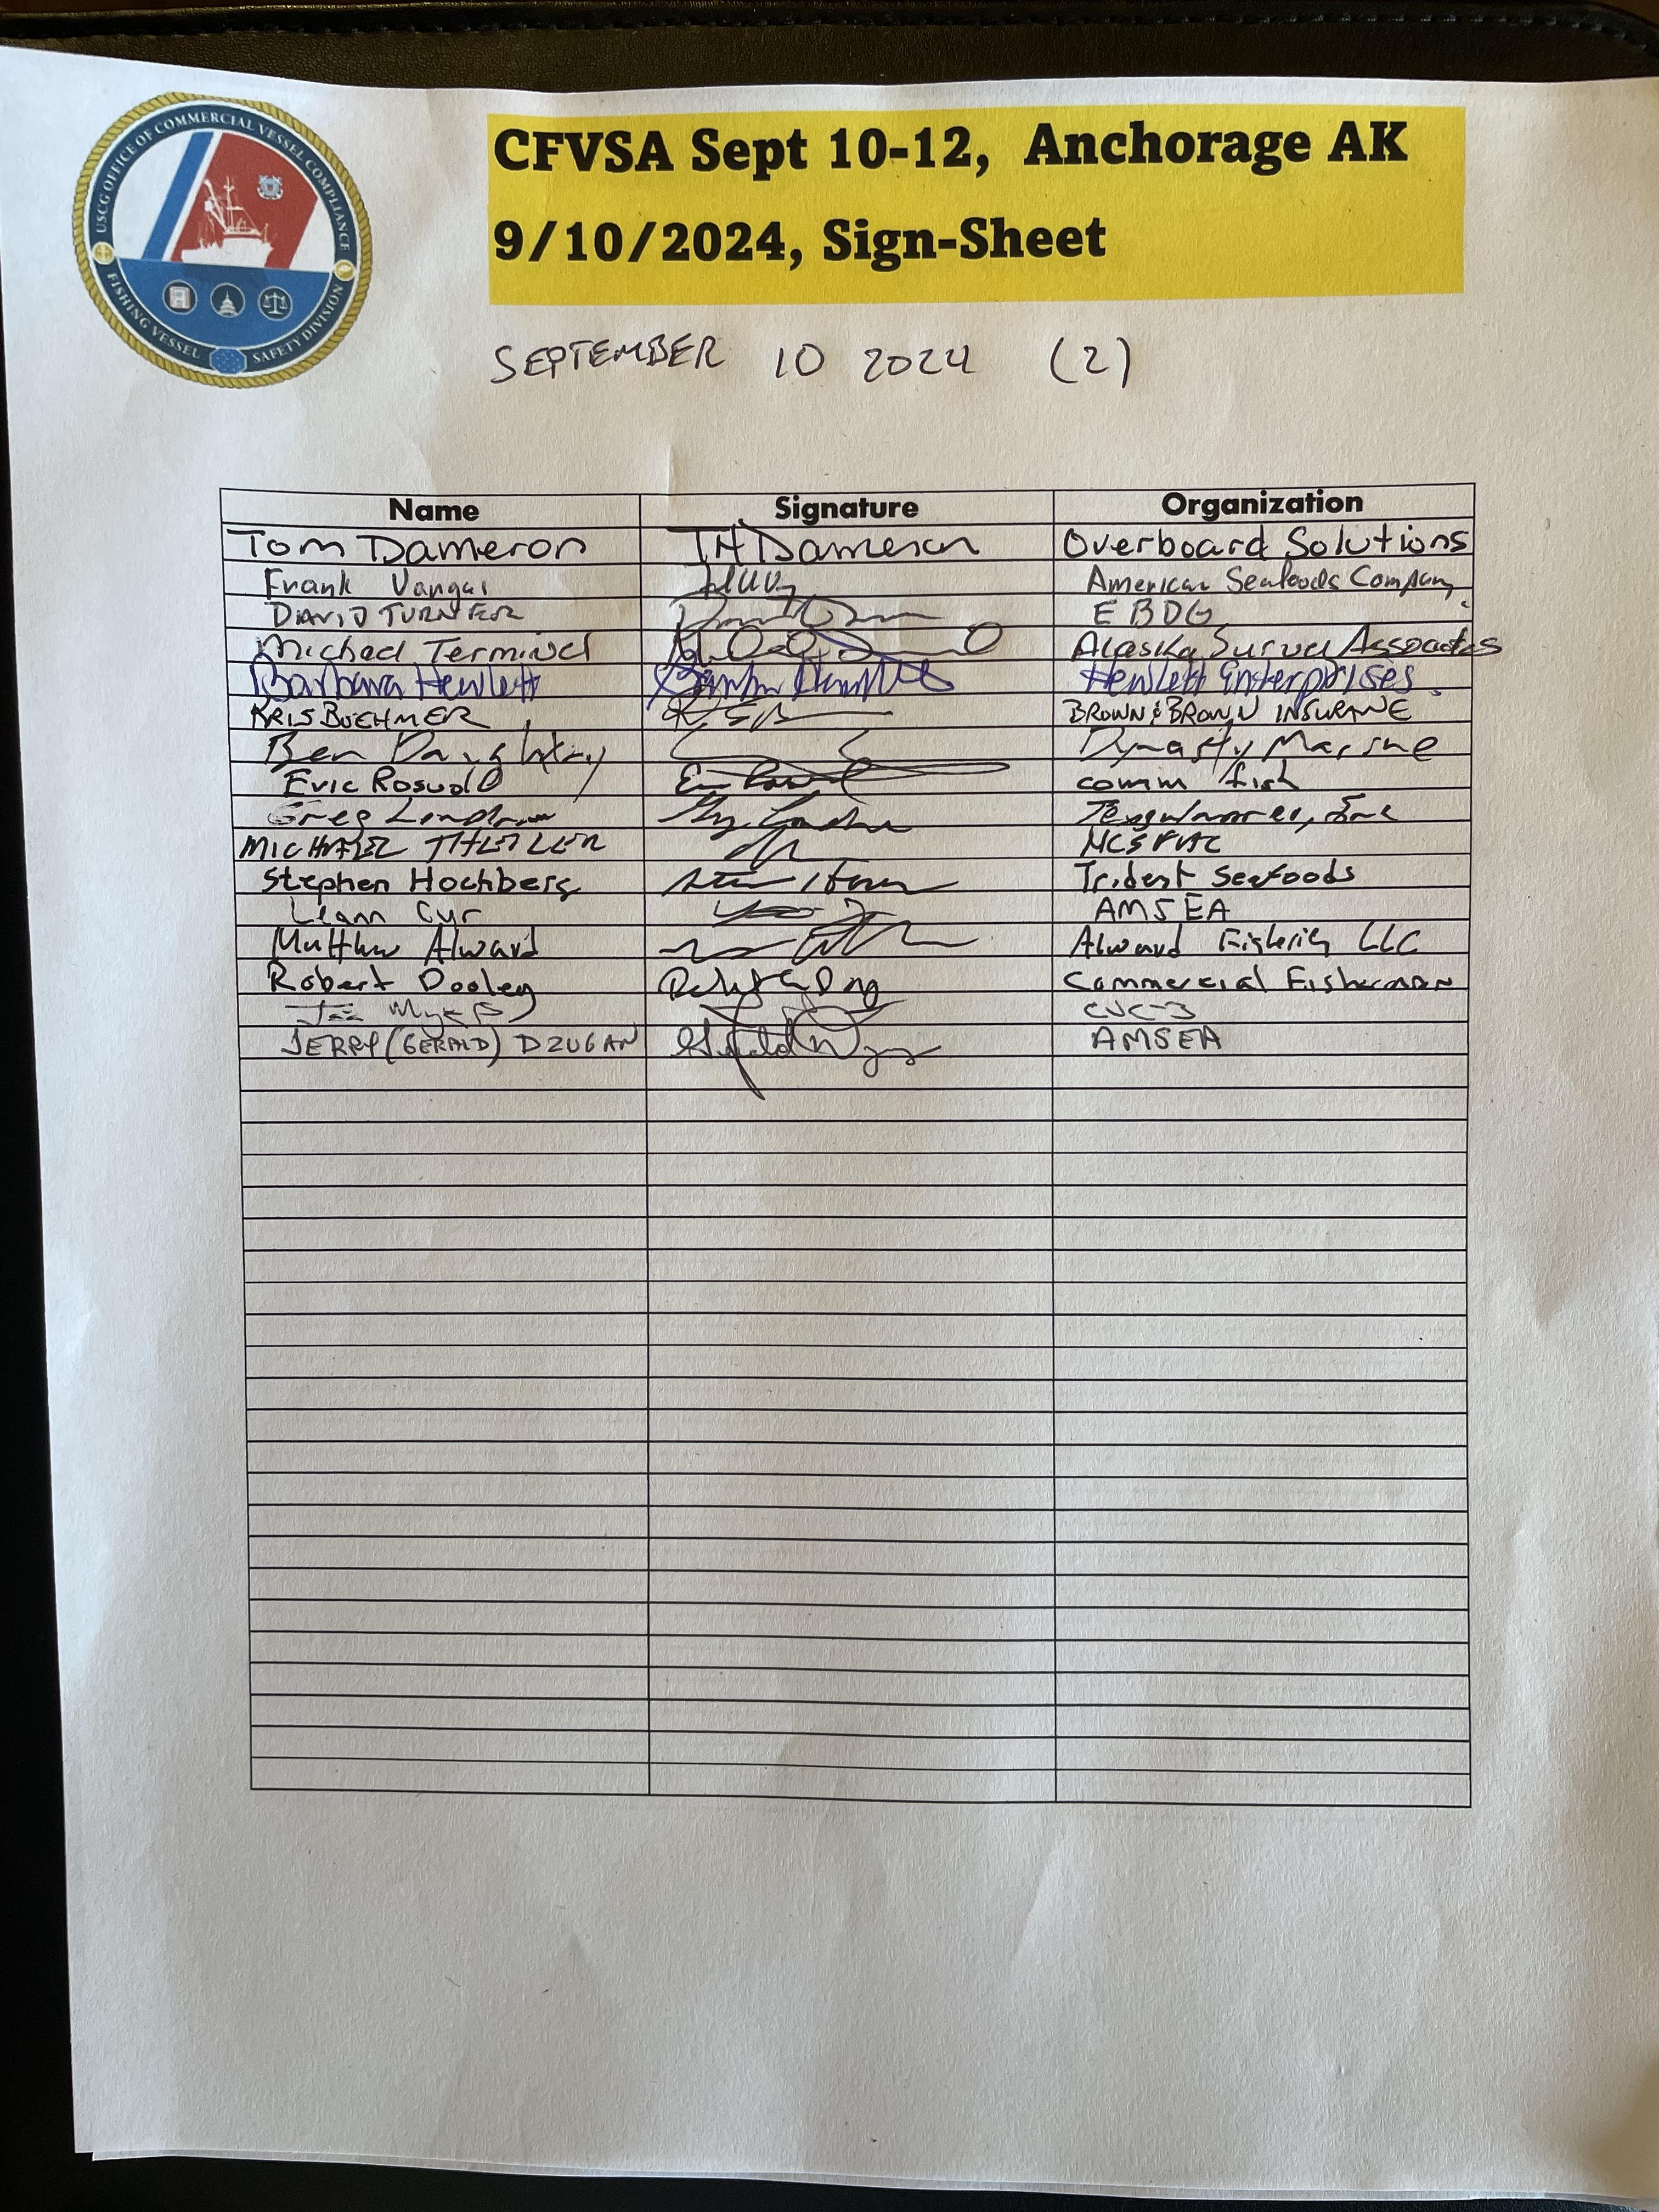 USCG OFFICE OF COMMERCIAL VESSEL COMPLIANCE
FISHING VESSEL SAFETY DIVISION
CFVSA Sept 10-12, Anchorage AK
9/10/2024, Sign-Sheet
SEPTEMBER 10 2024 (2)
Name Signature Organization
Tom Dameron TH Dameron Overboard Solutions
Frank Vangai American Seafoods Company
DAVID TURNER EBDG
Michael Terminel Alaska Survey Associates
Barbara Hewlett Hewlett Enterprises
KRIS BOEHMER BROWN & BROWN INSURANE
Ben Daughtry Dynasty Marine
Eric Rosvold comm fish
Greg
MICHAEL THEILER
Stephen Hochberg Trident Seafoods
Leann Cyr AMSEA
Matthew Alward Alward Fisheries LLC
Robert Dooley Commercial Fisherman
CVC-3
JERRY (GERALD) DZUGAN AMSEA